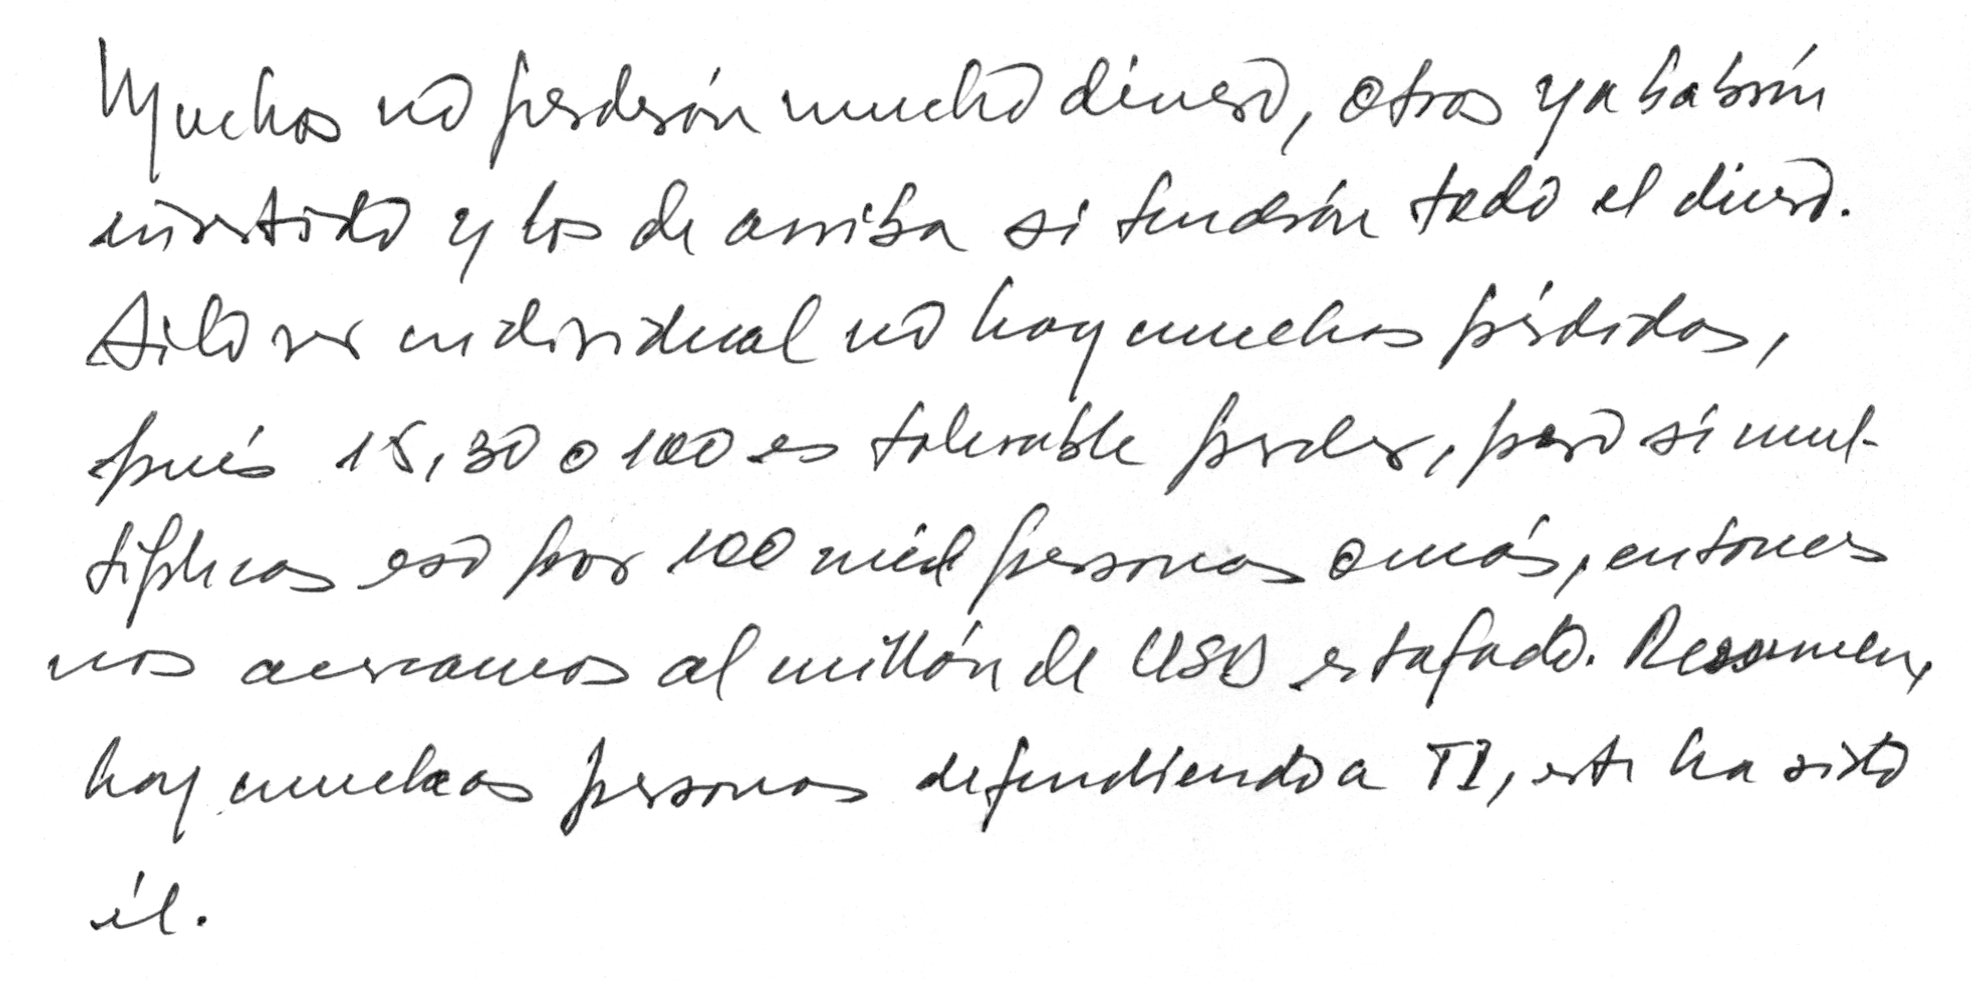 Muchos no perderán mucho dinero, otros ya habrán
invertido y los de arriba si tendrán todo el dinero.
Si lo ves individual no hay muchas pérdidas,
pués 15, 30 o 100 es tolerable perder, pero si mul-
tiplicas eso por 100 mil personas o más, entonces
nos acercamos al millón de USD estafado. Resumen,
hay muchas personas defendiendo a TI, este ha sido
él.